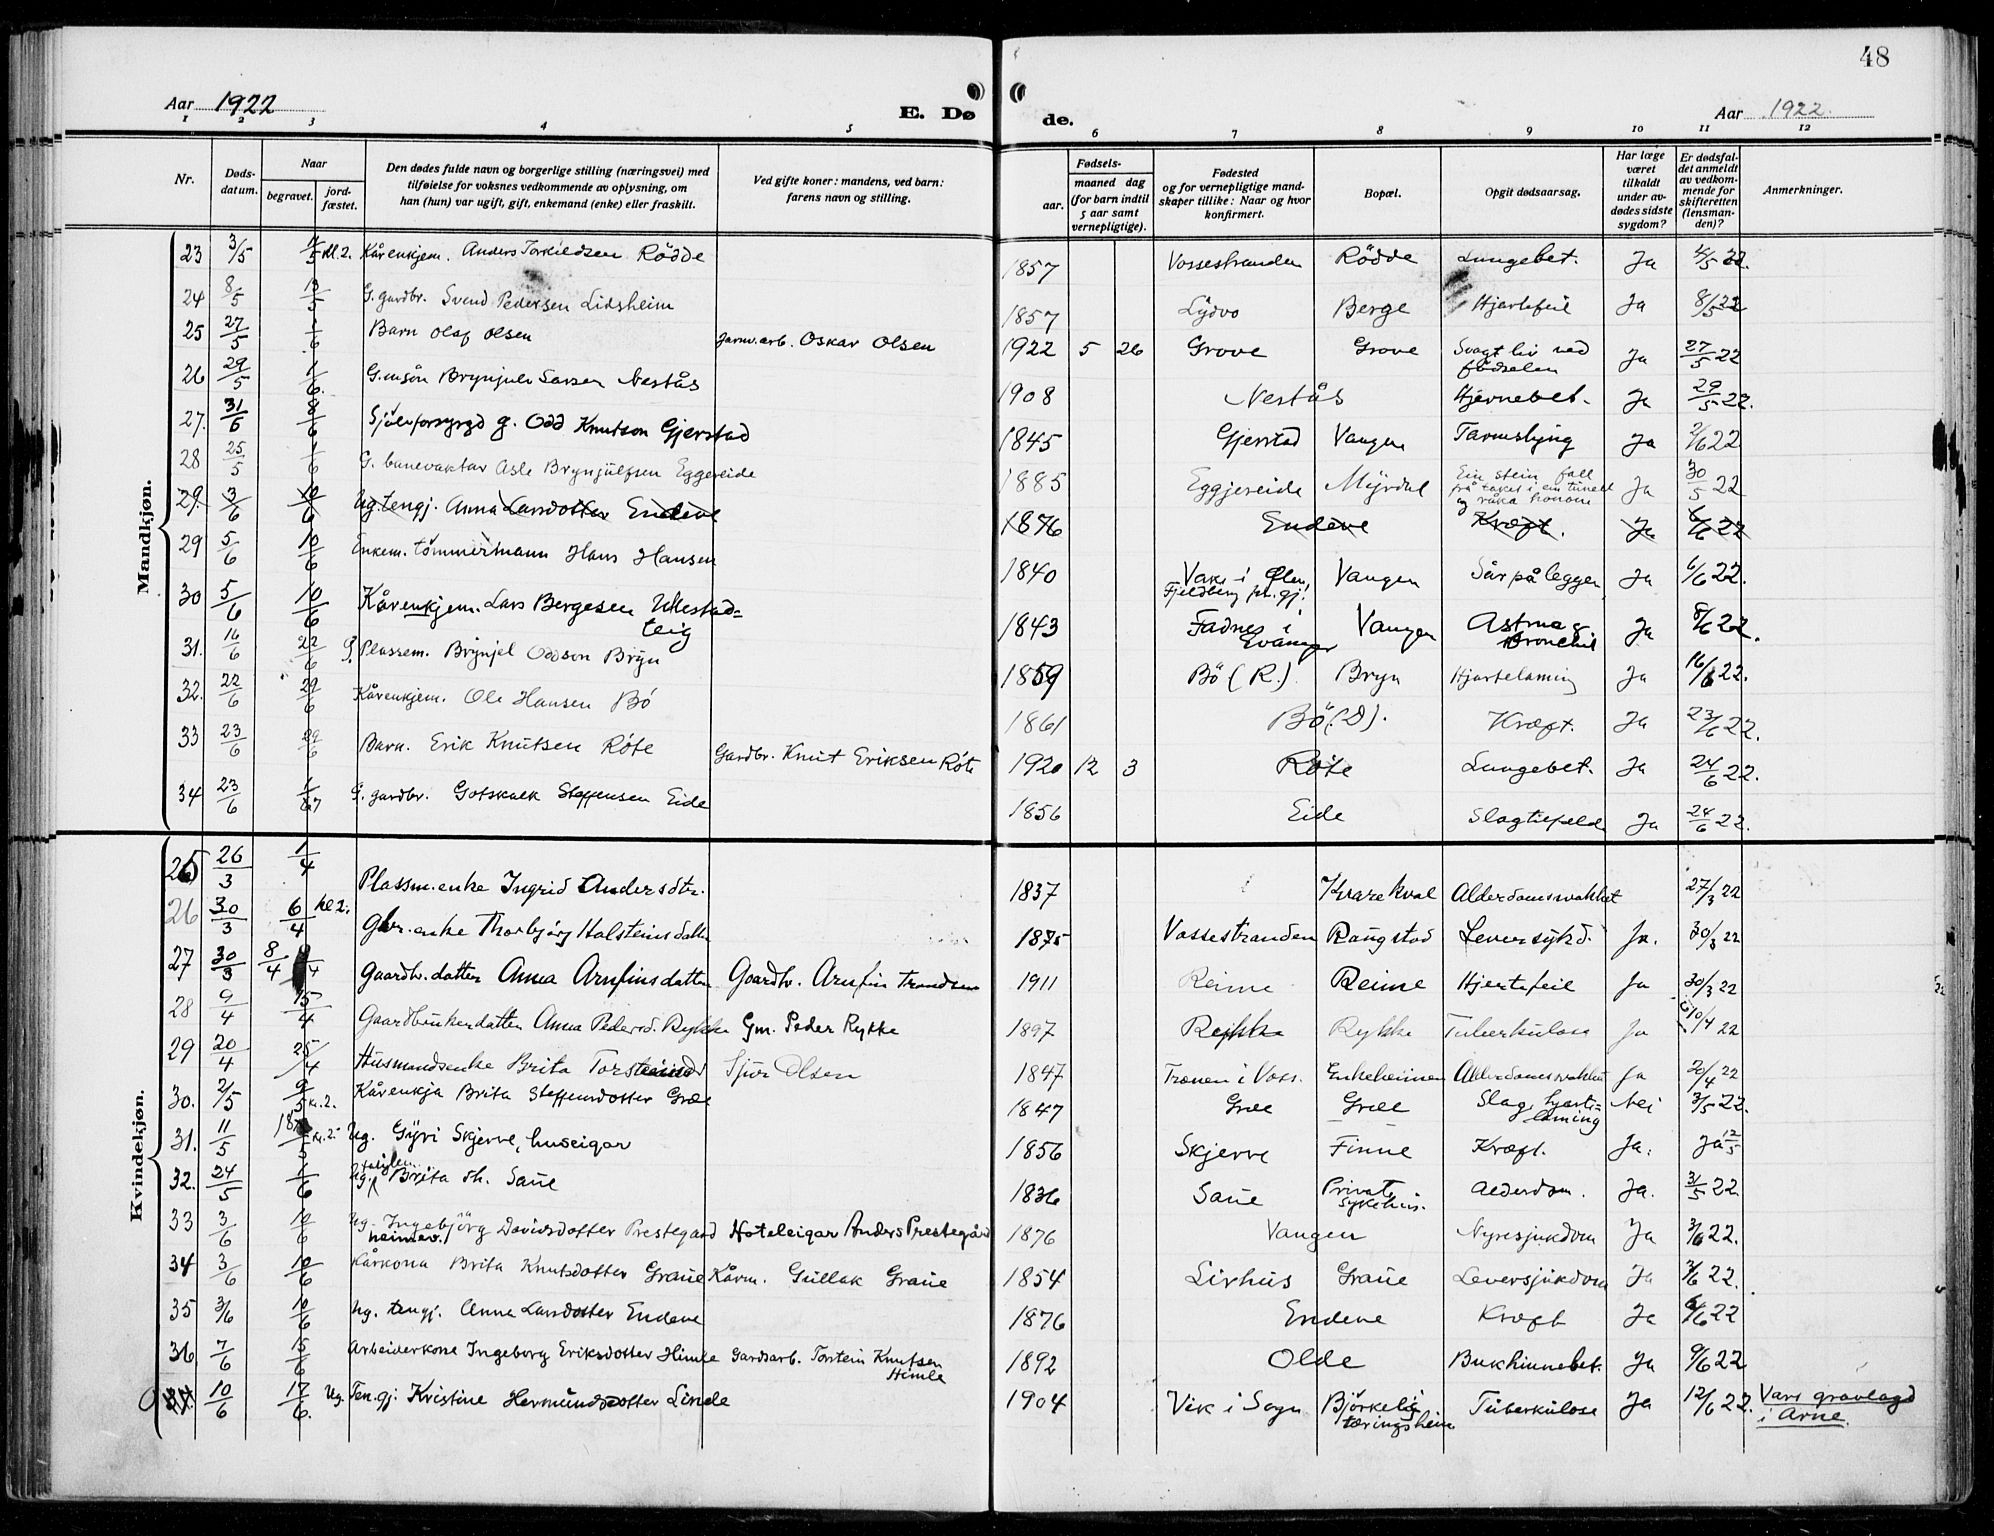 48
Aar 1922
E. Dø
de.
Aar 1922.
1 2 3 4 5 6 7 8 9 10 11 12
Nr.
Døds-
datum.
Naar
begravet.
jord-
fæstet.
Den dødes fulde navn og borgerlige stilling (næringsvei) med
tilføielse for voksnes vedkommende av oplysning, om
han (hun) var ugift, gift, enkemand (enke) eller fraskilt.
Ved gifte koner: mandens, ved barn:
farens navn og stilling.
Fødsels-
aar.
maaned dag
(for barn indtil
5 aar samt
vernepligtige).
Fødested
og for vernepligtige mand-
skaper tillike: Naar og hvor
konfirmert.
Bopæl.
Opgit dødsaarsag.
Har læge
været
tilkaldt
under av-
dødes sidste
sygdom?
Er dødsfal-
det anmeldt
av vedkom-
mende for
skifteretten
(lensman-
den)?
Anmerkninger.
Mandkjøn.
23 3/5 kl. 2. Kårenkjem. Anders Torkildsen Rödde 1857 Vossestranden Rödde Lungebet. Ja 4/5 22.
24 8/5 13/5 G. gardbr. Svend Pedersen Lidsheim 1857 Lydvo Berge Hjartefeil Ja 8/5 22
25 27/5 1/6 Barn Olaf Olsen Oskar Olsen 1922 5 26 Grove Grove Svagt liv ved
fødselen Ja 27/5 22
26 29/5 1/6. G.msön Brynjulv Larsen Nestås 1908 Nestås Hjernebet. Ja 29/5 22.
27. 31/6 Sjölvforsyrgd g. Odd Knutson Gjerstad 1845 Gjerstad Vangen Tarmslyng Ja 2/6 22
28 25/5 1/6 G. banevaktar Asle Brynjulfsen Eggjereide 1885 Eggjereide Myrdal Ein stein fall
frå taket i ein tunell
og råka honom Ja 30/5 22
29. 3/6 10/6 Ug. tengj. Anna Larsdotter Endeve 1876 Endeve Kræft. Ja 6/6 22
29 5/6 10/6 Enkem. tömmermann Hans Hansen 1840 Vaks i Ølen,
Fjeldberg pr.gj. Vangen Sår på leggen Ja 6/6 22.
30 5/6 10/6 Kårenkjem. Lars Bergesen Ullestad-
teig 1843 Fadnes i
Evanger Vangen Astma &
Bronchit Ja 8/6 22.
31. 16/6 22/6 g. Plassem. Brynjel Oddson Bryn 1859 Bö (R.) Bryn Hjartelaming Ja 16/6 22.
32. 22/6 29/6 Kårenkjem. Ole Hansen Bö 1861 Bö (D). Kræft. Ja 23/6 22.
33 23/6 29/6 Barn. Erik Knutsen Röte Gardbr. Knut Eriksen Röte 1920 12 3 Röte Lungebet. Ja 24/6 22.
34 23/6 1/7 G. gardbr. Gotskalk Steffensen Eide 1856 Eide Slagtilfelde Ja 24/6 22.
Kvindekjøn.
25 26/3 1/4 Plassm.enke Ingrid Andersdtr. 1837 Kvarekval Alderdomsvakhet 27/3 22
26 30/3 6/4 kl 2. Gbr. enke Thorbjörg Holsteinsdatter 1875 Vossestranden Raugstad Leversykd. Ja. 30/3 22
27 30/3 8/4 Gaardbr. datter Anna Arnfinsdatter Gaardbr. Arnfin Trondsen 1911 Reime Reime Hjertefeil Ja 30/3 22
28 9/4 15/4 Gaardbrukerdatter Anna Pedersd. Rykke Gm. Peder Rykke 1897 Rykke Rykke Tuberkulose Ja 10/4 22
29 20/4 25/4 Husmandsenke Brita Torsteinsd Sjur Olsen 1847 Tronen i Voss. Enkeheimen Alderdomsvakhet Ja 20/4 22
30. 2/5 9/5 kl.2. Kårenkja Brita Steffensdotter Græe 1847 Græe Græe Slag, hjarte-
laming Nei 3/5 22.
31. 11/5 kl. 2. Ug. Gyri Skjerve, huseigar 1856 Skjerve Finne Kræft. Ja. Ja 12/5
32. 24/5 1/6 Ug. Brita Th. Saue 1836 Saue Private
sykehus. Alderdom. Ja. 31/5 22
33 3/6 10/6 Ug. Ingebjörg Davidsdotter Prestegard
heimev. Hoteleigar Anders Prestegård 1876 Vangen Nyresjukdom Ja 3/6 22.
34 3/6 10/6 Kårkona Brita Knutsdotter Graue Kårm. Gullak Graue 1854 Lirhus Graue Leversjukdom Ja 3/6 22.
35 3/6 10/6 Ug. tengj. Anna Larsdotter Endeve 1876 Endeve Kræft Ja 6/6 22
36. 7/6 15/6 Arbeiderkone Ingeborg Eriksdotter Himle Gardsarb. Torstein Knutsen
Himle 1892 Olde Bukhinnebet. Ja 9/6 22
37. 10/6 17/6. Ug. Ten.gj. Kristine Hermundsdotter Linde 1904 Vik i Sogn Björkeli
tæringsheim Tuberkulose Ja 12/6 22. Vart gravlagd
i Arne.